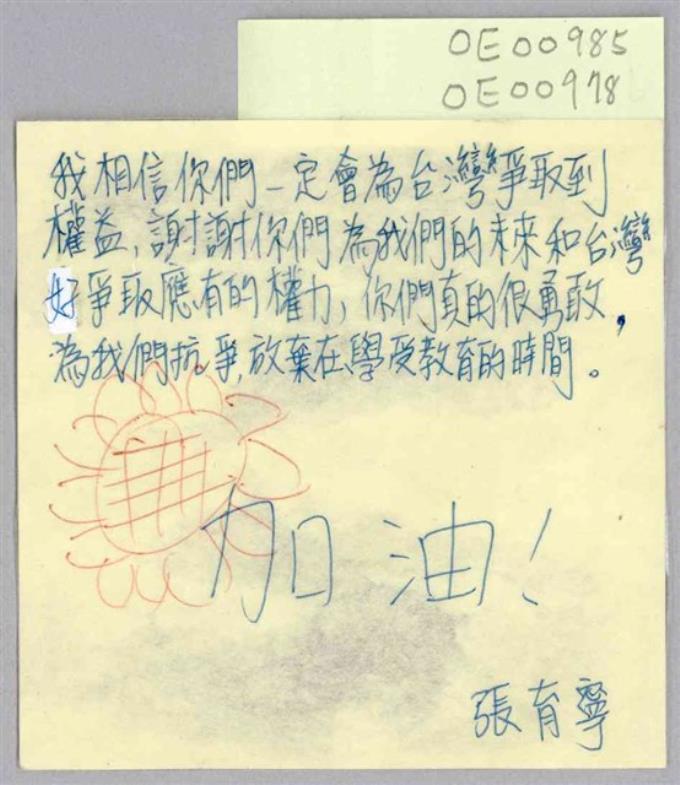 OE00985
OE00978
我相信你們一定會為台灣爭取到
權益，謝謝你們為我們的未來和台灣
好爭取應有的權力，你們真的很勇敢，
為我們抗爭，放棄在學受教育的時間。
加油！
張育寧